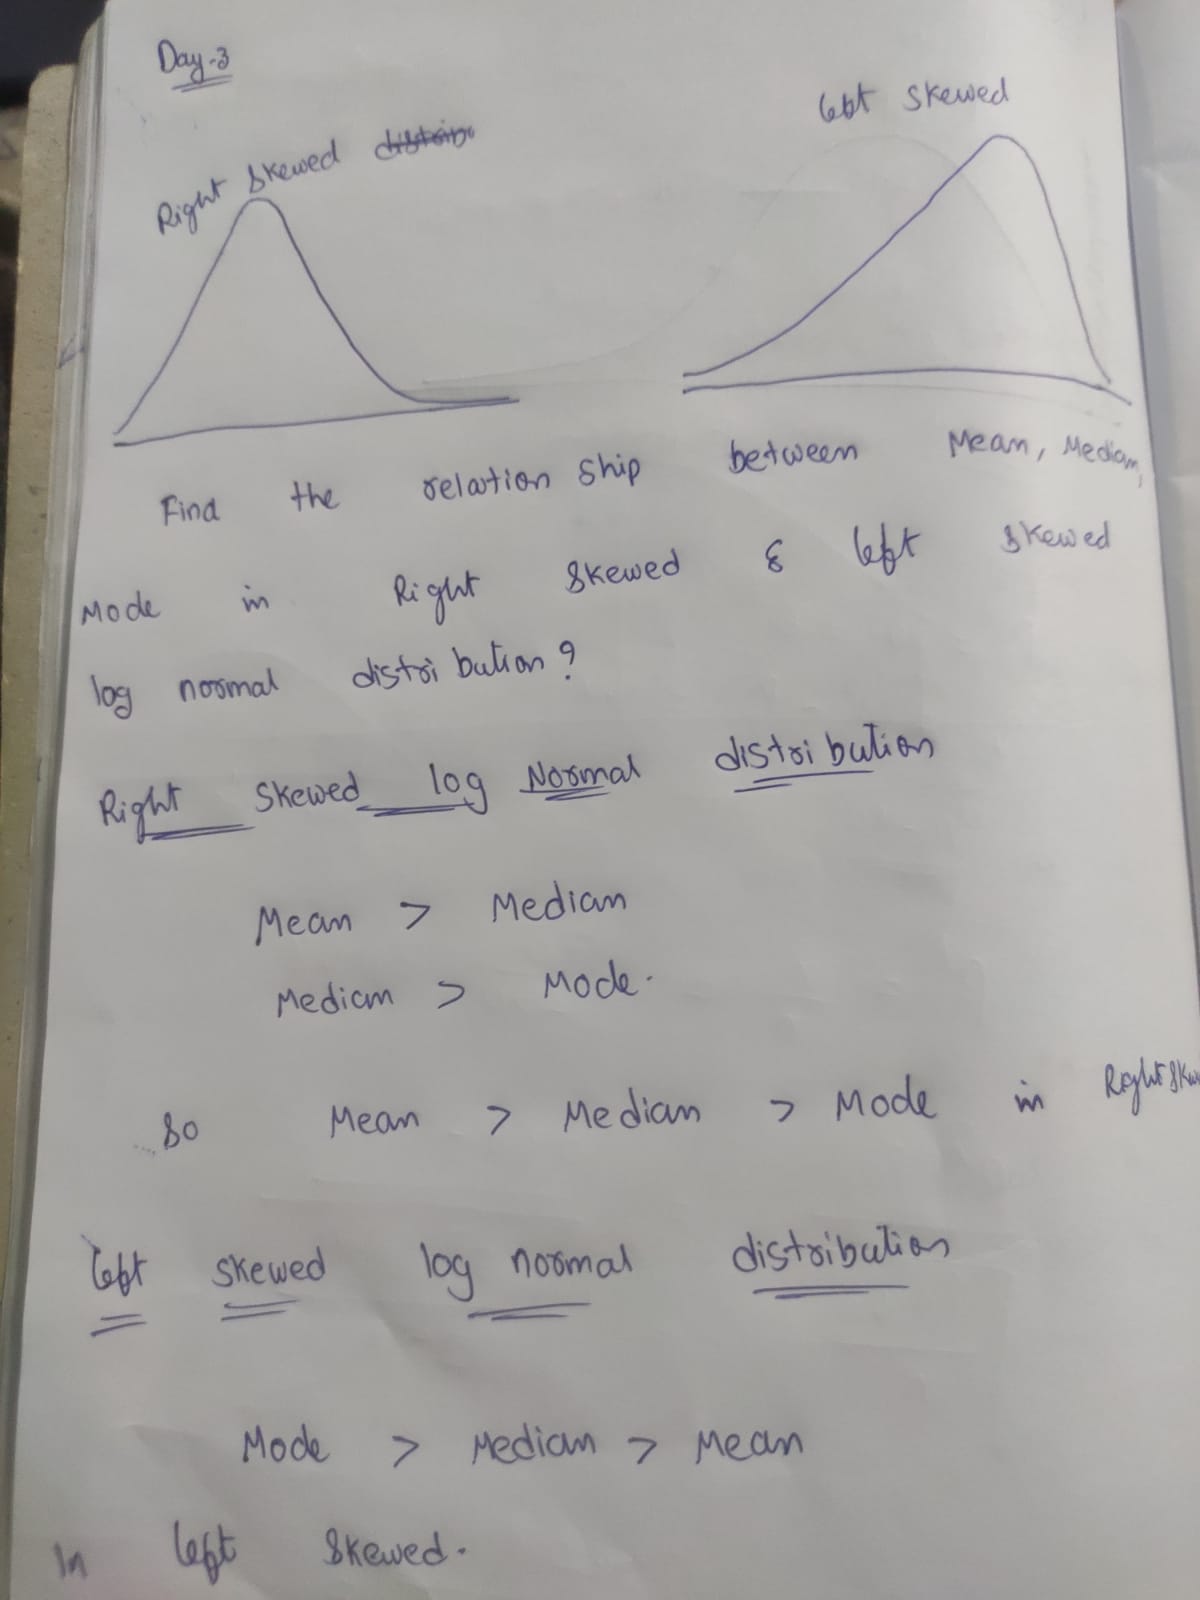 Day-3
Right Skewed
left skewed
Find the relation ship between Mean, Median,
Mode in Right skewed & left skewed
log normal distribution?
Right Skewed log Normal distribution
Mean > Median
Median > Mode.
So Mean > Median > Mode in Right
left skewed log normal distribution
Mode > Median > Mean
In left skewed.